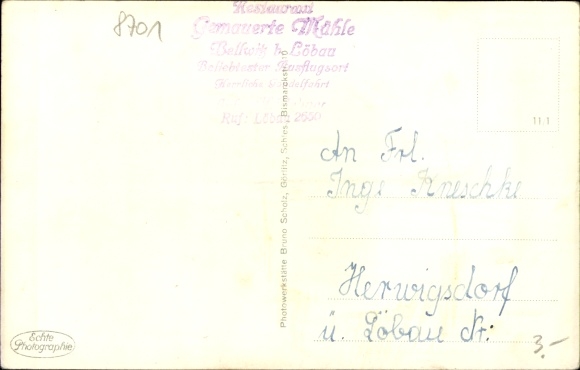 8701
Restaurant
Gemauerte Mühle
Bellwitz b. Löbau
Beliebtester Ausflugsort
Herrliche
Ruf: Löbau 2650
11/1
An Frl.
Inge Kneschke
Herwigsdorf
ü. Löbau
3.-
Photowerkstätte Bruno Scholz, Görlitz, Schles., Bismarckstr. 10
Echte
Photographie